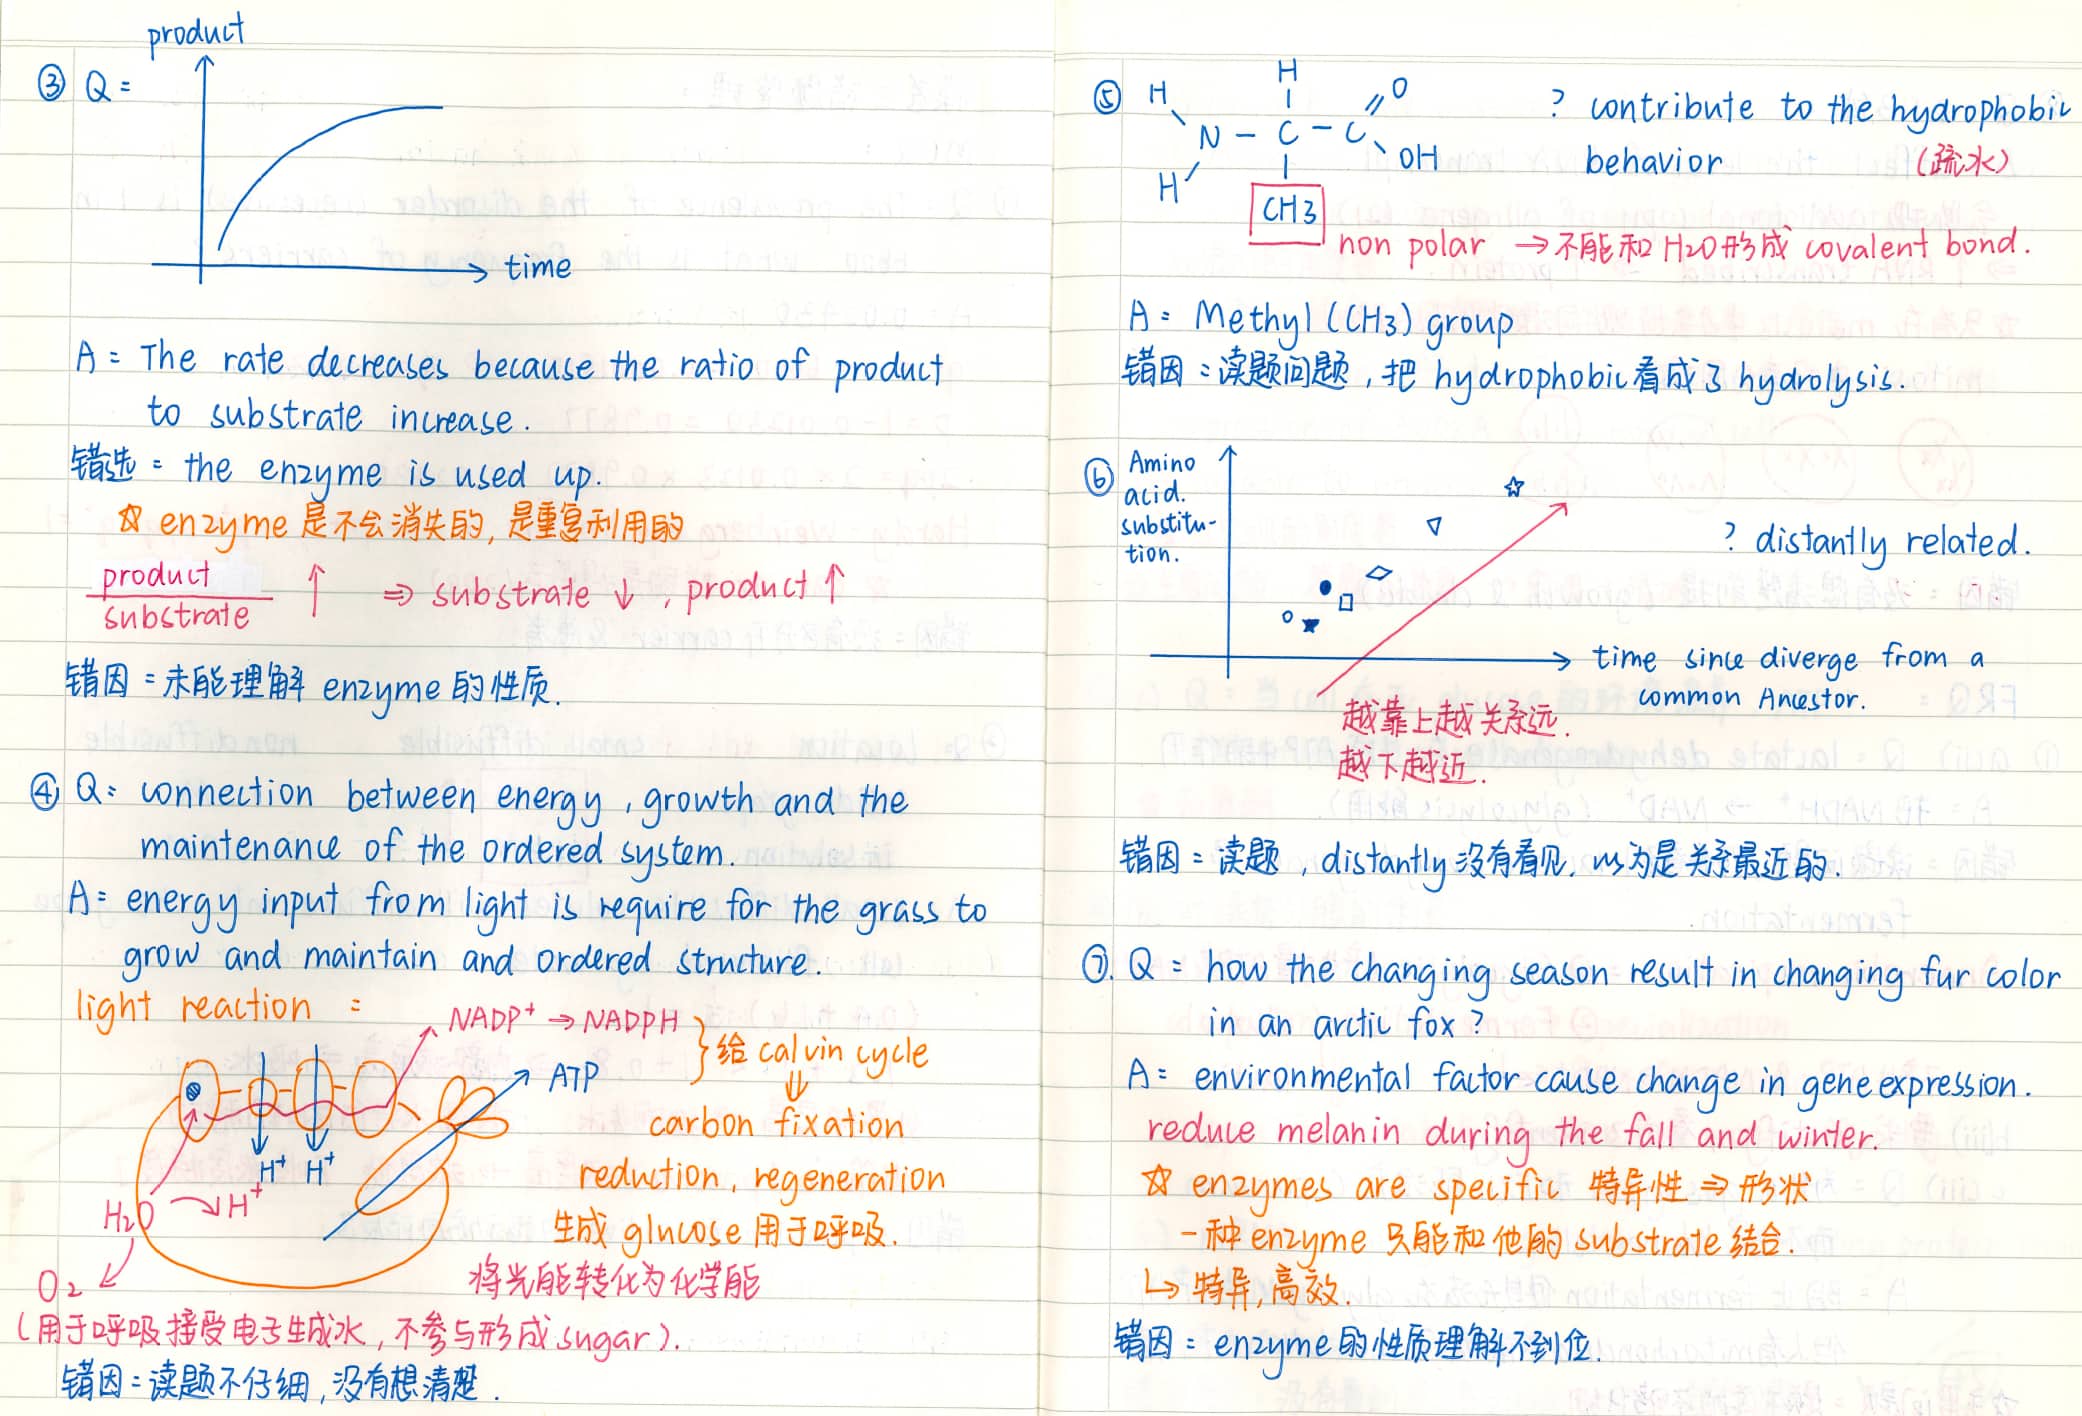 product
③ Q =
time
A = The rate decreases because the ratio of product
to substrate increase.
错选 = the enzyme is used up.
☆ enzyme 是不会消失的, 是重复利用的
product
substrate
↑ ⇒ substrate ↓, product ↑
错因 = 未能理解 enzyme 的性质.
④ Q: connection between energy, growth and the
maintenance of the ordered system.
A = energy input from light is require for the grass to
grow and maintain and ordered structure.
light reaction =
NADP⁺ → NADPH
} 给 calvin cycle
⇓
ATP
carbon fixation
H⁺ H⁺
reduction, regeneration
H₂O → H⁺
生成 glucose 用于呼吸.
O₂
将光能转化为化学能
(用于呼吸接受电子生成水, 不参与形成 sugar).
错因 = 读题不仔细, 没有想清楚.
⑤ H H O
N - C - C
H OH
CH3
? contribute to the hydrophobic
behavior (疏水)
non polar → 不能和 H2O 形成 covalent bond.
A = Methyl (CH3) group
错因 = 读题问题, 把 hydrophobic 看成了 hydrolysis.
⑥ Amino
acid.
substitu-
tion.
? distantly related.
time since diverge from a
common Ancestor.
越靠上越关系远.
越下越近.
错因 = 读题, distantly 没有看见, 以为是关系最近的.
⑦. Q = how the changing season result in changing fur color
in an arctic fox?
A = environmental factor cause change in gene expression.
reduce melanin during the fall and winter.
☆ enzymes are specific 特异性 ⇒ 形状
一种 enzyme 只能和他的 substrate 结合.
↳ 特异, 高效.
错因 = enzyme 的性质理解不到位.